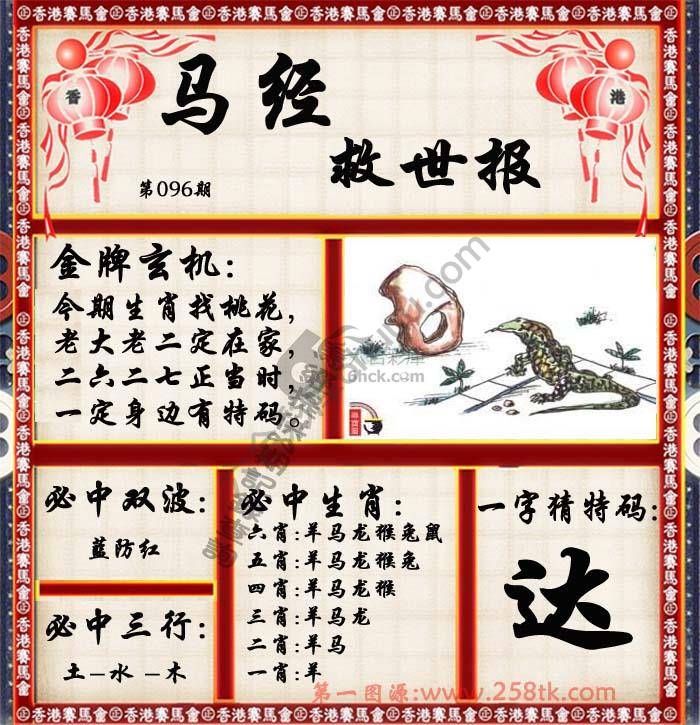 香 港
马经
救世报
第096期
金牌玄机:
今期生肖找桃花,
老大老二定在家,
二六二七正当时,
一定身边有特码。
必中双波:
蓝防红
必中三行:
土–水–木
必中生肖:
六肖:羊马龙猴兔鼠
五肖:羊马龙猴兔
四肖:羊马龙猴
三肖:羊马龙
二肖:羊马
一肖:羊
一字猜特码:
达
第一图源:www.258tk.com
香港賽馬會